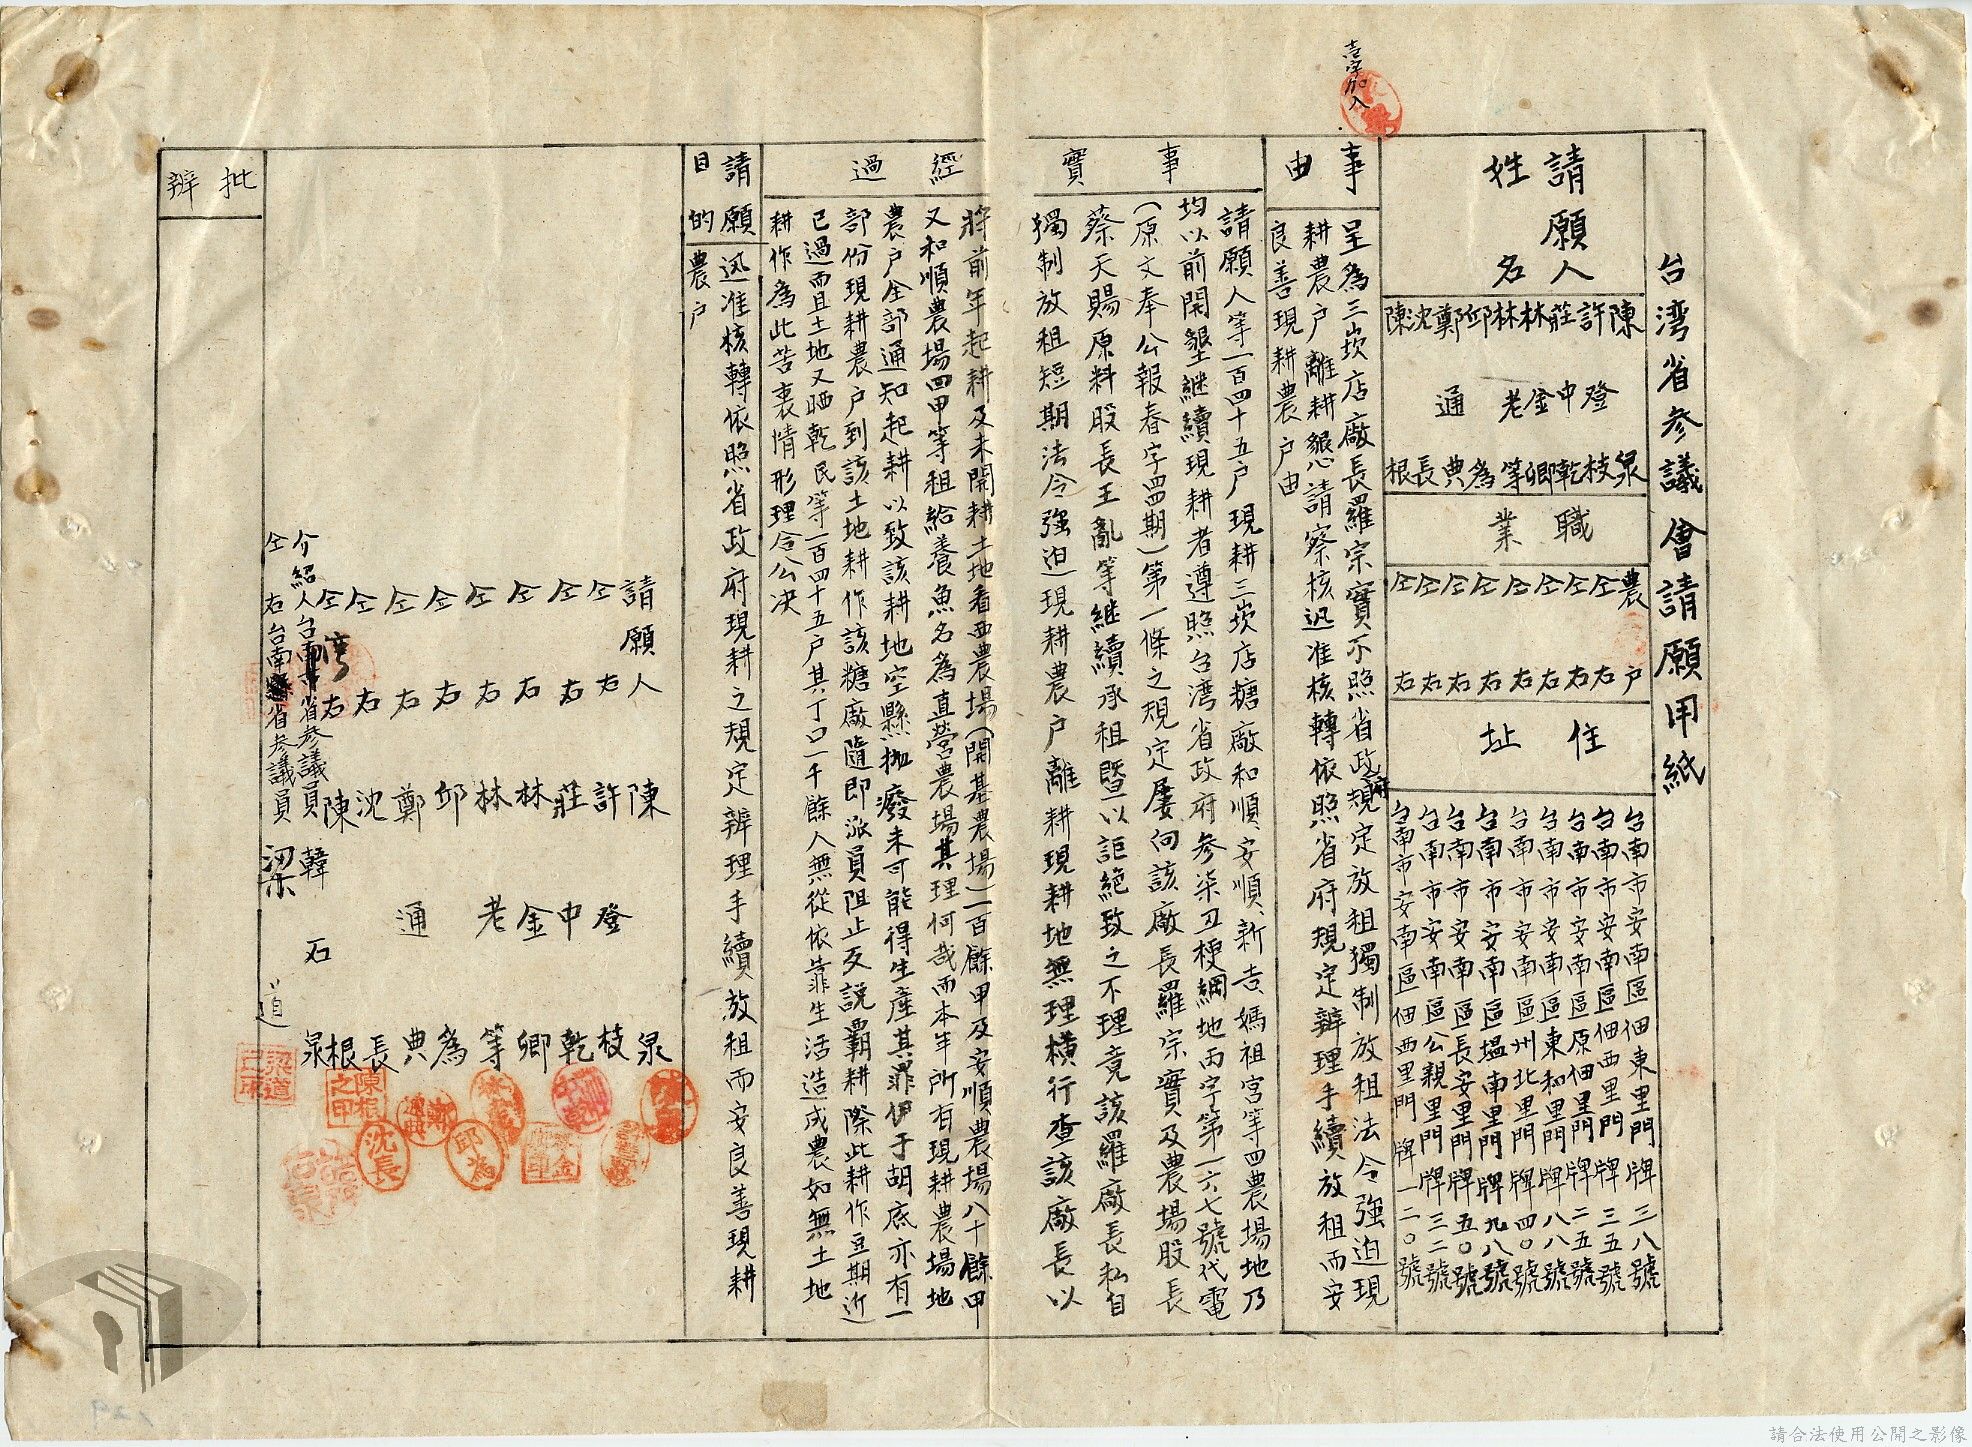 壹字加入
台湾省参議會請願用紙
請願人
姓名
陳登泉
許中枝
莊金乾
林老卿
林等
邱為
鄭通典
沈長
陳根
職業
農户
仝右
仝右
仝右
仝右
仝右
仝右
仝右
仝右
住址
台南市安南區佃東里門牌三八號
台南市安南區佃西里門牌三五號
台南市安南區原佃里門牌二五號
台南市安南區東和里門牌八八號
台南市安南區州北里門牌四〇號
台南市安南區塭南里門牌九八號
台南市安南區長安里門牌五〇號
台南市安南區公親里門牌三二號
台南市安南區佃西里門牌一二〇號
事由
呈為三崁店廠長羅宗實不照省政府規定放租獨制放租法令強迫現
耕農户離耕懇請察核迅准核轉依照省府規定辦理手續放租而安
良善現耕農户由
事實
請願人等一百四十五户現耕三崁店糖廠和順、安順、新吉、媽祖宮等四農場地乃
均以前開墾継續現耕者遵照台湾省政府参柒丑梗綱地丙字第一六七號代電
(原文奉公報春字四四期)第一條之規定屡向該廠長羅宗實及農場股長
蔡天賜原料股長王亂等継續承租暨以詎絕致之不理竟該羅廠長私自
獨制放租短期法令强迫現耕農户離耕現耕地無理橫行查該廠長以
經過
將前年起耕及未開耕土地看西農場(開基農場)一百餘甲及安順農場八十餘甲
又和順農場四甲等租給養魚名為直營農場其理何哉而本年所有現耕農場地
農户全部通知起耕以致該耕地空懸拋廢未可能得生產其罪伊于胡底亦有一
部份現耕農户到該土地耕作該糖廠隨即派員阻止反説覇耕際此耕作豆期近
已過而且土地又晒乾民等一百四十五户其丁口一千餘人無從依靠生活造成農如無土地
耕作為此苦衷情形理合公決
請願目的
迅准核轉依照省政府現耕之規定辦理手續放租而安良善現耕
農户
請願人 陳登泉
仝右 許中枝
仝右 莊金乾
仝右 林老卿
仝右 林等
仝右 邱為
仝右 鄭通典
仝右 沈長
仝右 陳根
介紹人台湾省参議員 韓石泉
仝右台南縣省参議員 梁道
批辦
陳根之印
沈長
邱為
請合法使用公開之影像